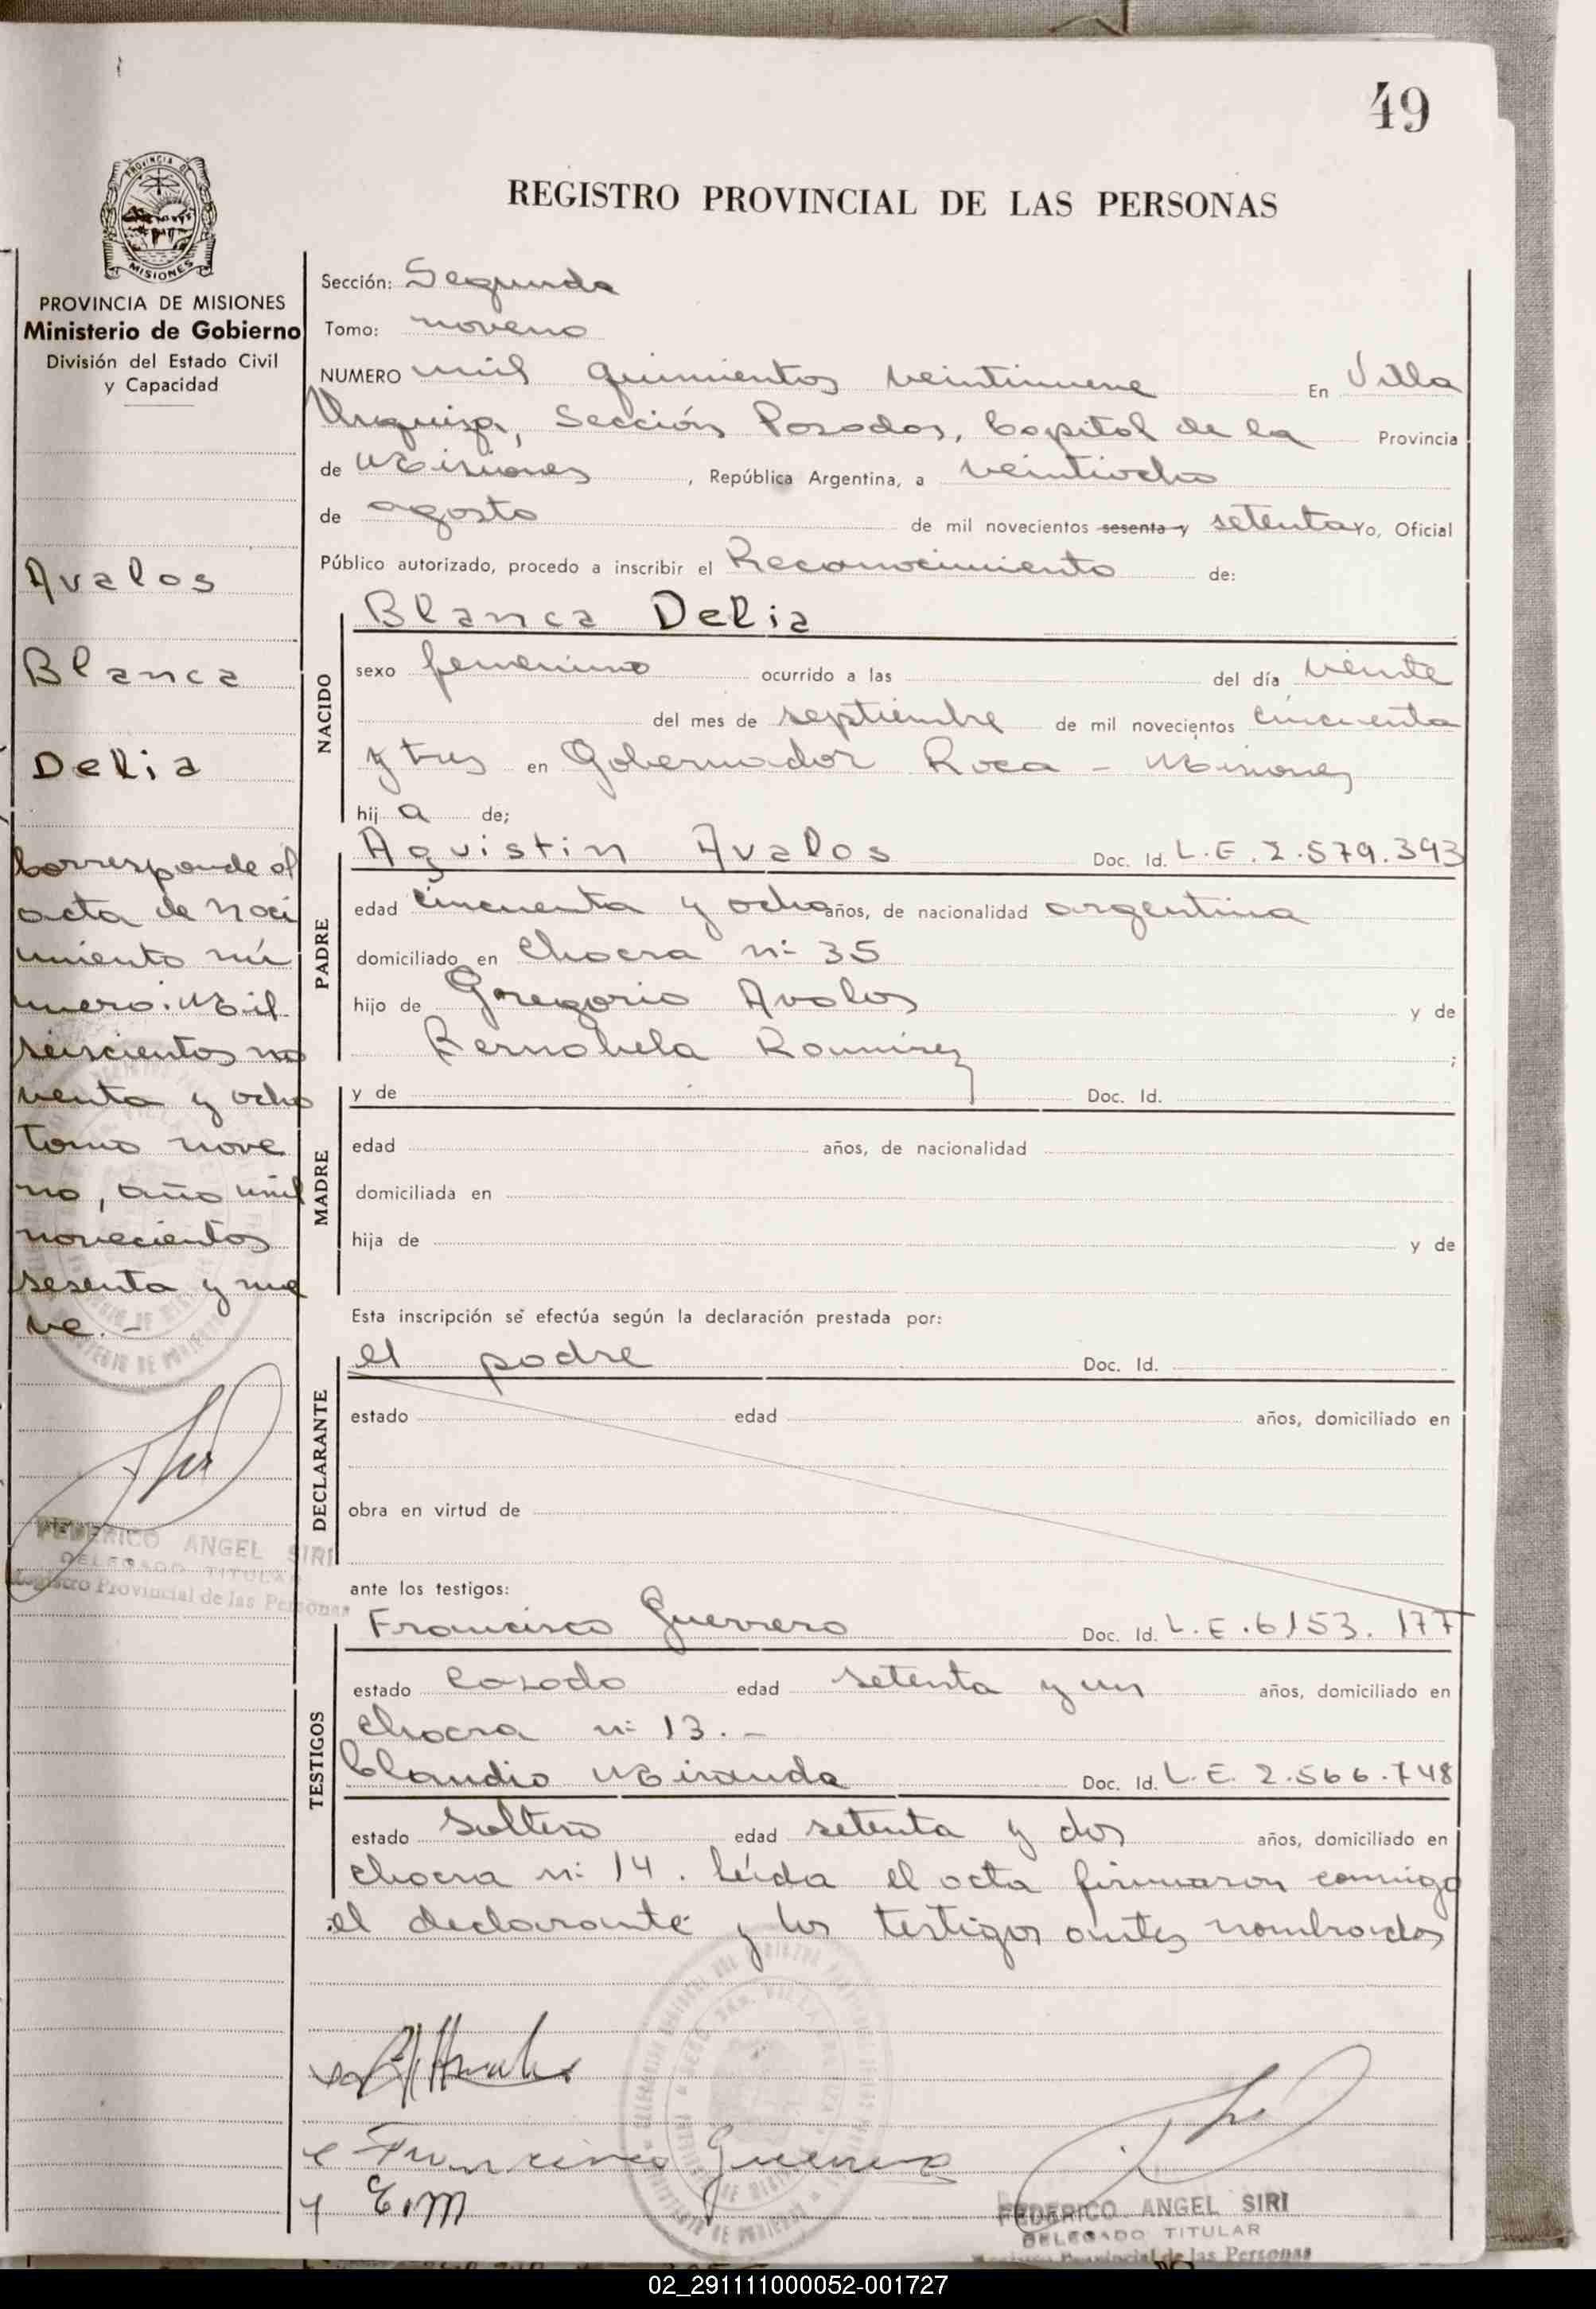 49
REGISTRO PROVINCIAL DE LAS PERSONAS
PROVINCIA DE MISIONES
Ministerio de Gobierno
División del Estado Civil
y Capacidad
Avalos
Blanca
Delia
Corresponde al
acta de naci
miento nú
mero: Mil
seiscientos no
venta y ocho
tomo nove
no, año mil
novecientos
sesenta y nue
ve.-
FEDERICO ANGEL SIRI
DELEGADO TITULAR
Registro Provincial de las Personas
Sección: Segunda
Tomo: noveno
NUMERO mil quinientos veintinueve En Villa
Urquiza, Sección Posadas, Capital de la Provincia
de Misiones, República Argentina, a veintiocho
de agosto de mil novecientos sesenta y setenta Yo, Oficial
Público autorizado, procedo a inscribir el Reconocimiento de:
NACIDO
Blanca Delia
sexo femenino ocurrido a las del día veinte
del mes de septiembre de mil novecientos cincuenta
y tres en Gobernador Roca - Misiones
hij a de;
PADRE
Agustin Avalos Doc. Id. L.E. 2.579.393
edad cincuenta y ocho años, de nacionalidad argentina
domiciliado en chacra nº 35
hijo de Gregorio Avalos y de
Bernabela Ramirez ;
MADRE
y de Doc. Id.
edad años, de nacionalidad
domiciliada en
hija de y de
Esta inscripción se efectúa según la declaración prestada por:
DECLARANTE
el padre Doc. Id.
estado edad años, domiciliado en
obra en virtud de
ante los testigos:
TESTIGOS
Francisco Guerrero Doc. Id. L.E. 6153.177
estado casado edad setenta y un años, domiciliado en
chacra nº 13.-
Claudio Miranda Doc. Id. L.E. 2.566.748
estado Soltero edad setenta y dos años, domiciliado en
chacra nº 14. Leída el acta firmaron conmigo
el declarante y los testigos antes nombrados
Francisco Guerrero
FEDERICO ANGEL SIRI
DELEGADO TITULAR
Registro Provincial de las Personas
02_291111000052-001727